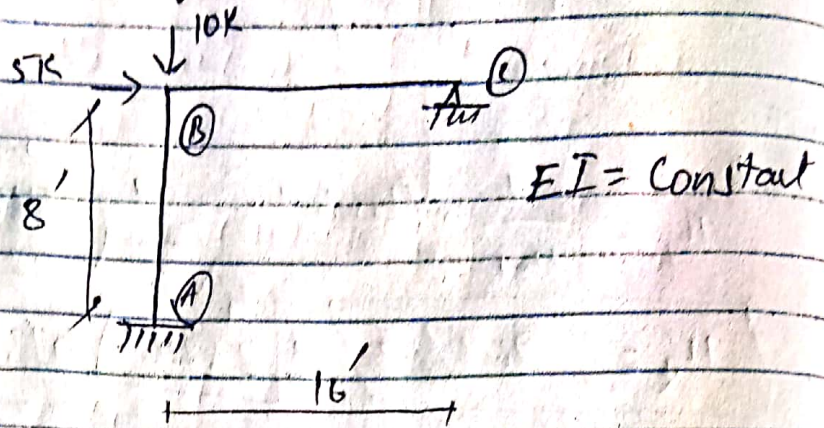 10K
5K
C
B
EI = Constant
8'
A
16'